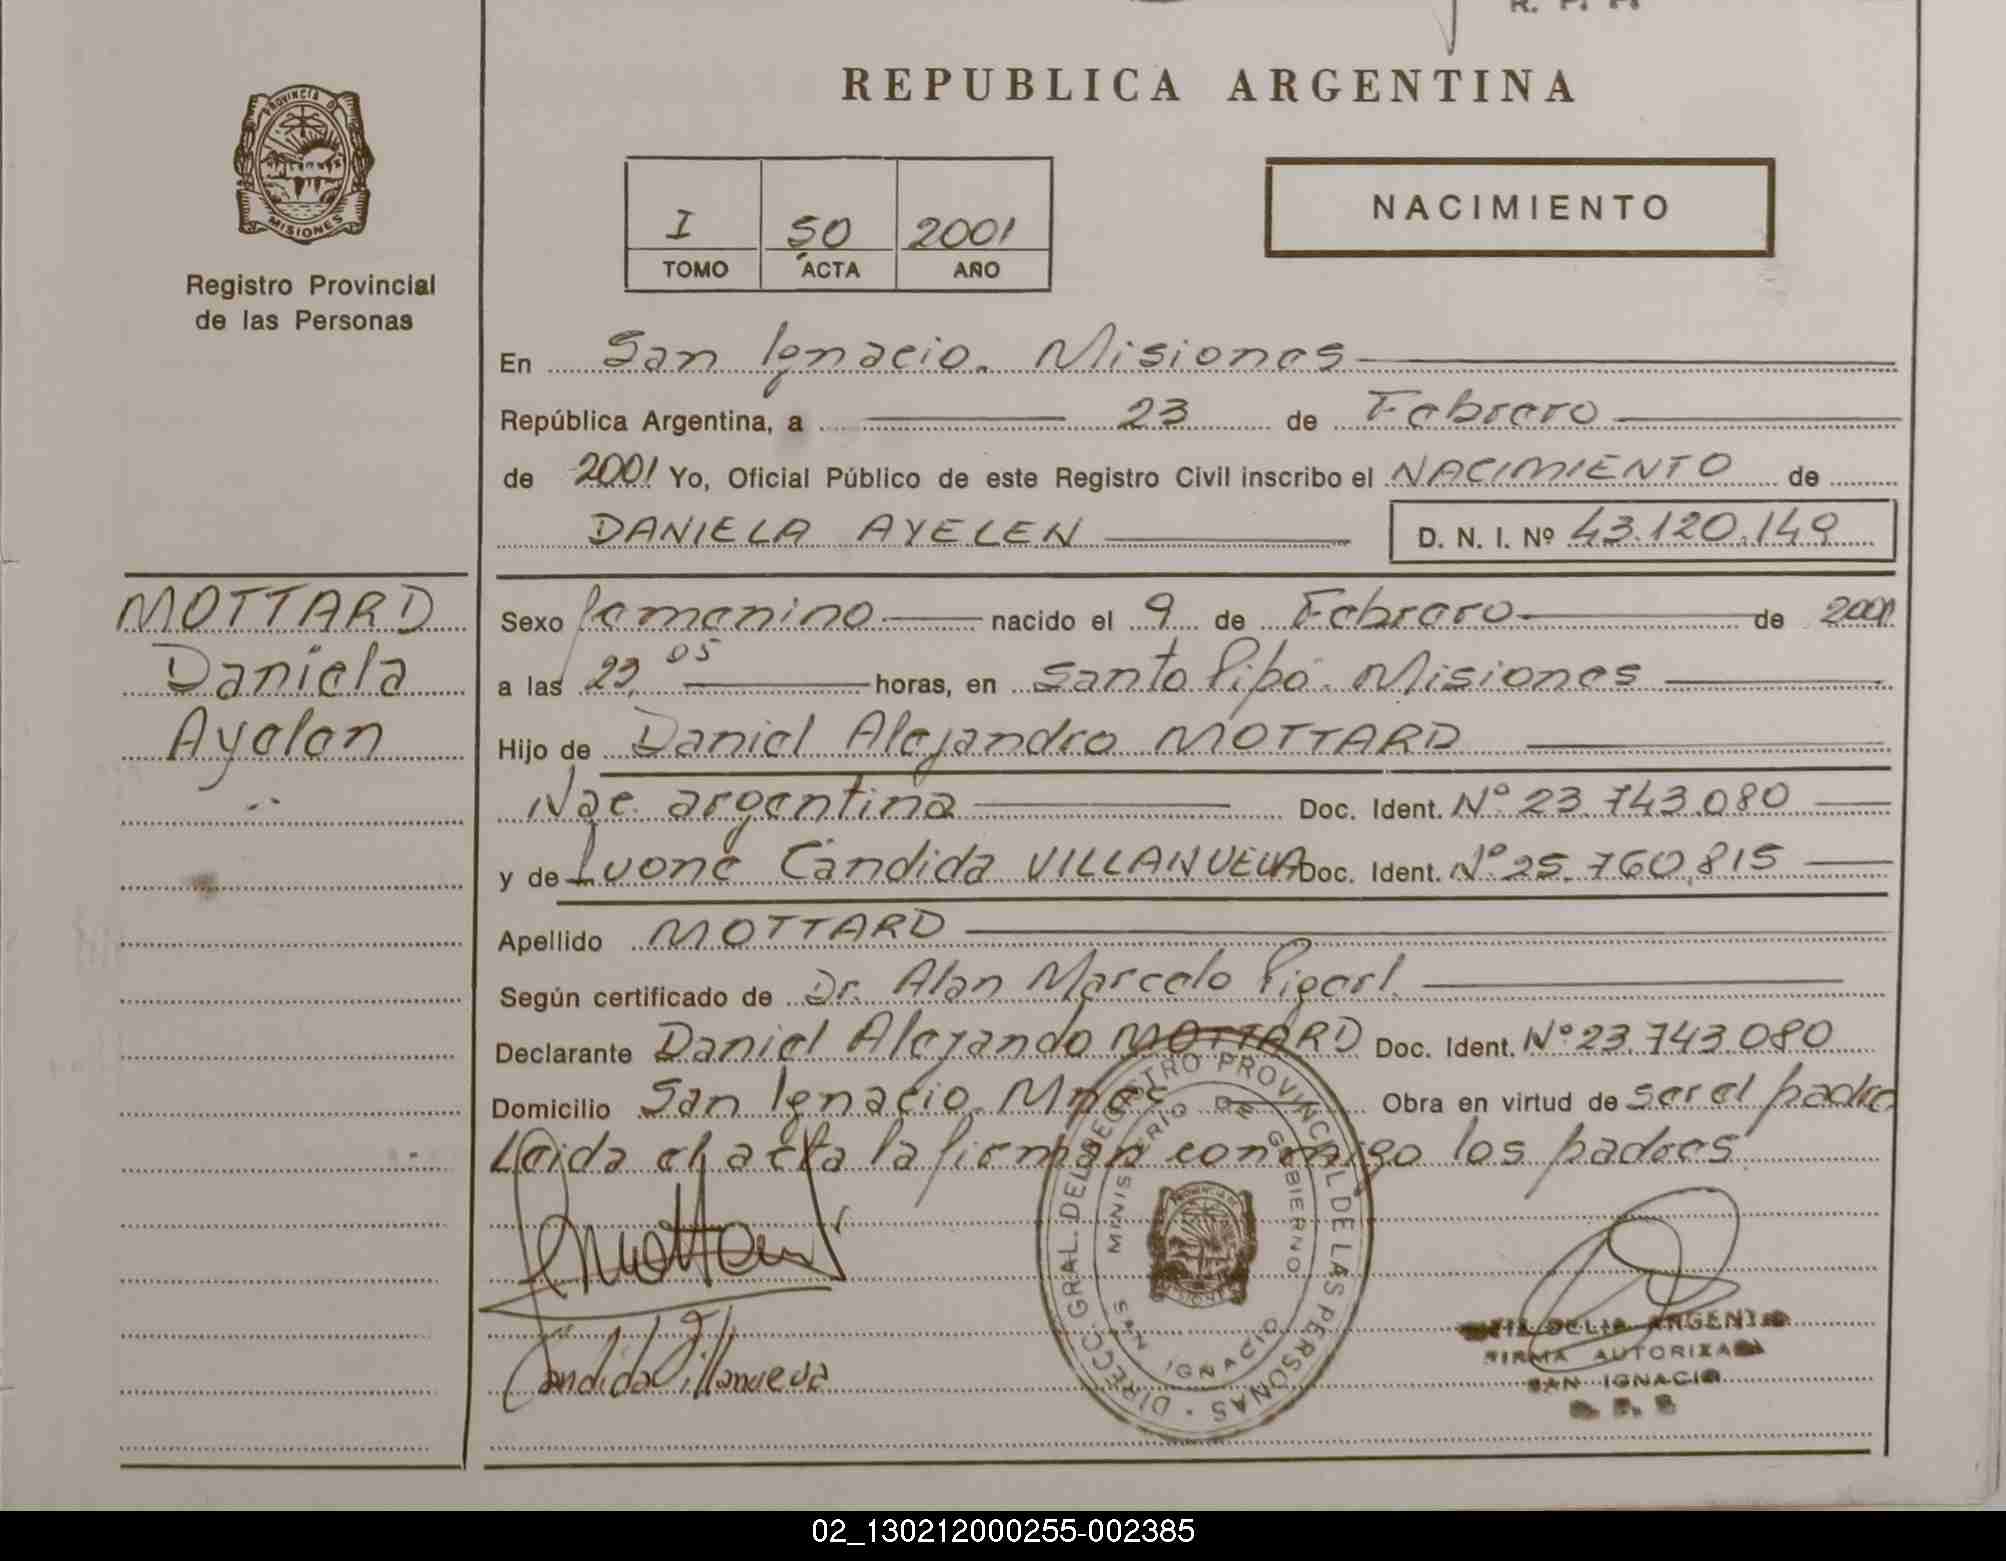 R. P. P.
REPUBLICA ARGENTINA
PROVINCIA DE
MISIONES
Registro Provincial
de las Personas
I 50 2001
TOMO ACTA AÑO
NACIMIENTO
En San Ignacio. Misiones
República Argentina, a 23 de Febrero
de 2001 Yo, Oficial Público de este Registro Civil inscribo el NACIMIENTO de
DANIELA AYELEN D. N. I. Nº 43.120.149
MOTTARD
Daniela
Ayelen
Sexo femenino nacido el 9 de Febrero de 2001
a las 23,05 horas, en Santo Pipó. Misiones
Hijo de Daniel Alejandro MOTTARD
Nac. argentina Doc. Ident. Nº 23.743.080
y de Ivone Candida VILLANUEVA Doc. Ident. Nº 25.760.815
Apellido MOTTARD
Según certificado de Dr. Alan Marcelo
Declarante Daniel Alejando MOTTARD Doc. Ident. Nº 23.743.080
Domicilio San Ignacio. Mnes Obra en virtud de ser el padre
Leida el acta la firman conmigo los padres
DIRECC. GRAL. DEL REGISTRO PROVINCIAL DE LAS PERSONAS
MINISTERIO DE GOBIERNO
SAN IGNACIO
Candida Villanueva
DELIA ARGENTI
FIRMA AUTORIZADA
SAN IGNACIO
02_130212000255-002385